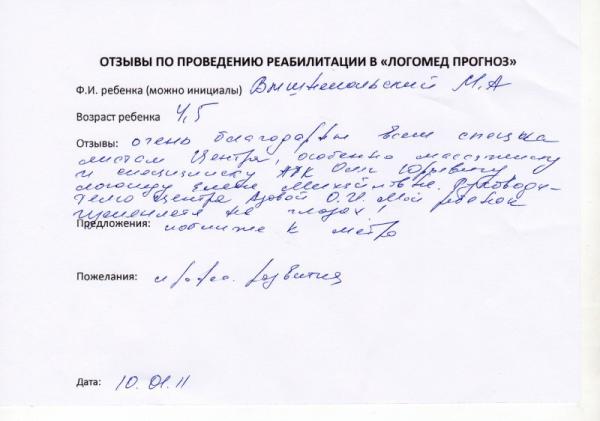 ОТЗЫВЫ ПО ПРОВЕДЕНИЮ РЕАБИЛИТАЦИИ В «ЛОГОМЕД ПРОГНОЗ»
Ф.И. ребенка (можно инициалы) М.А
Возраст ребенка 4,5
Отзывы: очень благодарны всем специа
листам Центра, особенно массажисту
и специалисту АТК Юрьевичу
логопеду Елене Михайловне. Руководи-
телю Центра О.И. Мой ребенок
на глазах!
Предложения: поближе к метро
Пожелания: развития
Дата: 10.01.11